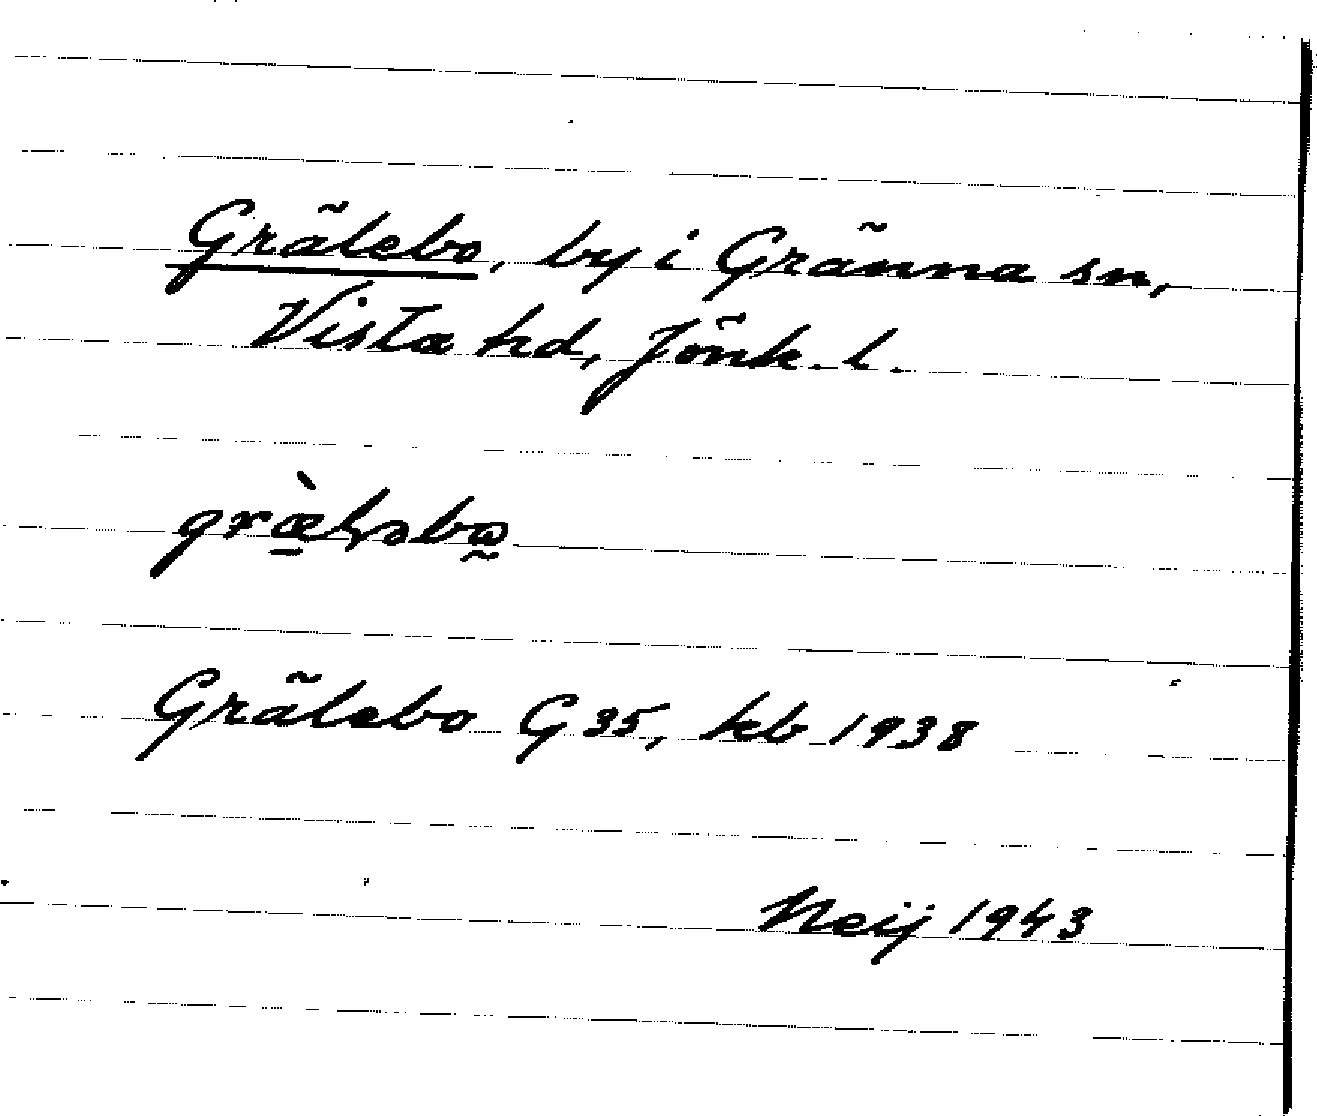 Grälebo, by i Gränna sn,
Vista hd, Jönk. l.
Grälebo G 35, kb 1938
Neij 1943